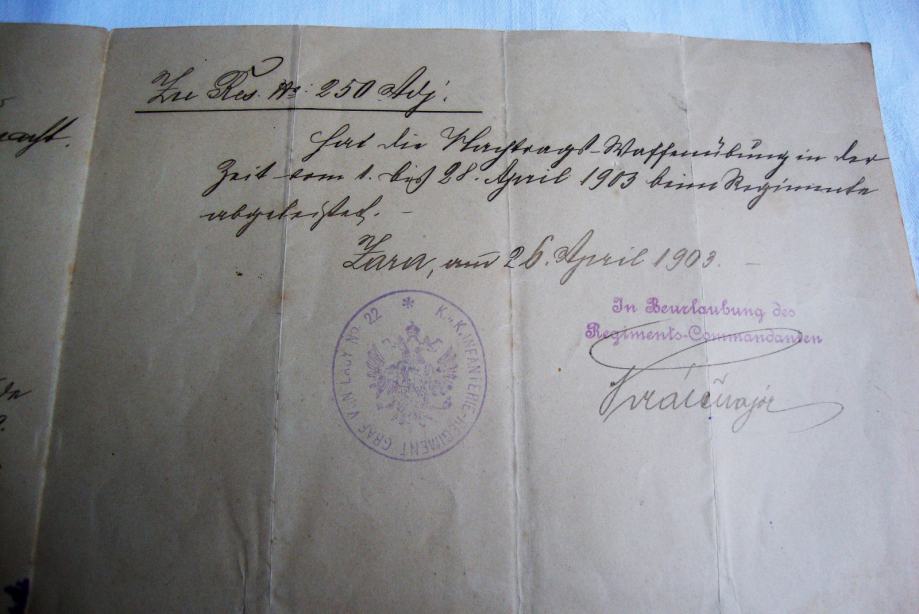 acht.
Zu Res. No: 250 Adj.
Hat die Nachtrags-Waffenübung in der
Zeit vom 1. bis 28. April 1903 beim Regimente
abgeleistet. –
Zara, am 26. April 1903. –
K.u.K. INFANTERIE-REGIMENT GRAF VON LACY No. 22 *
In Beurlaubung des
Regiments-Commandanten
Major
de